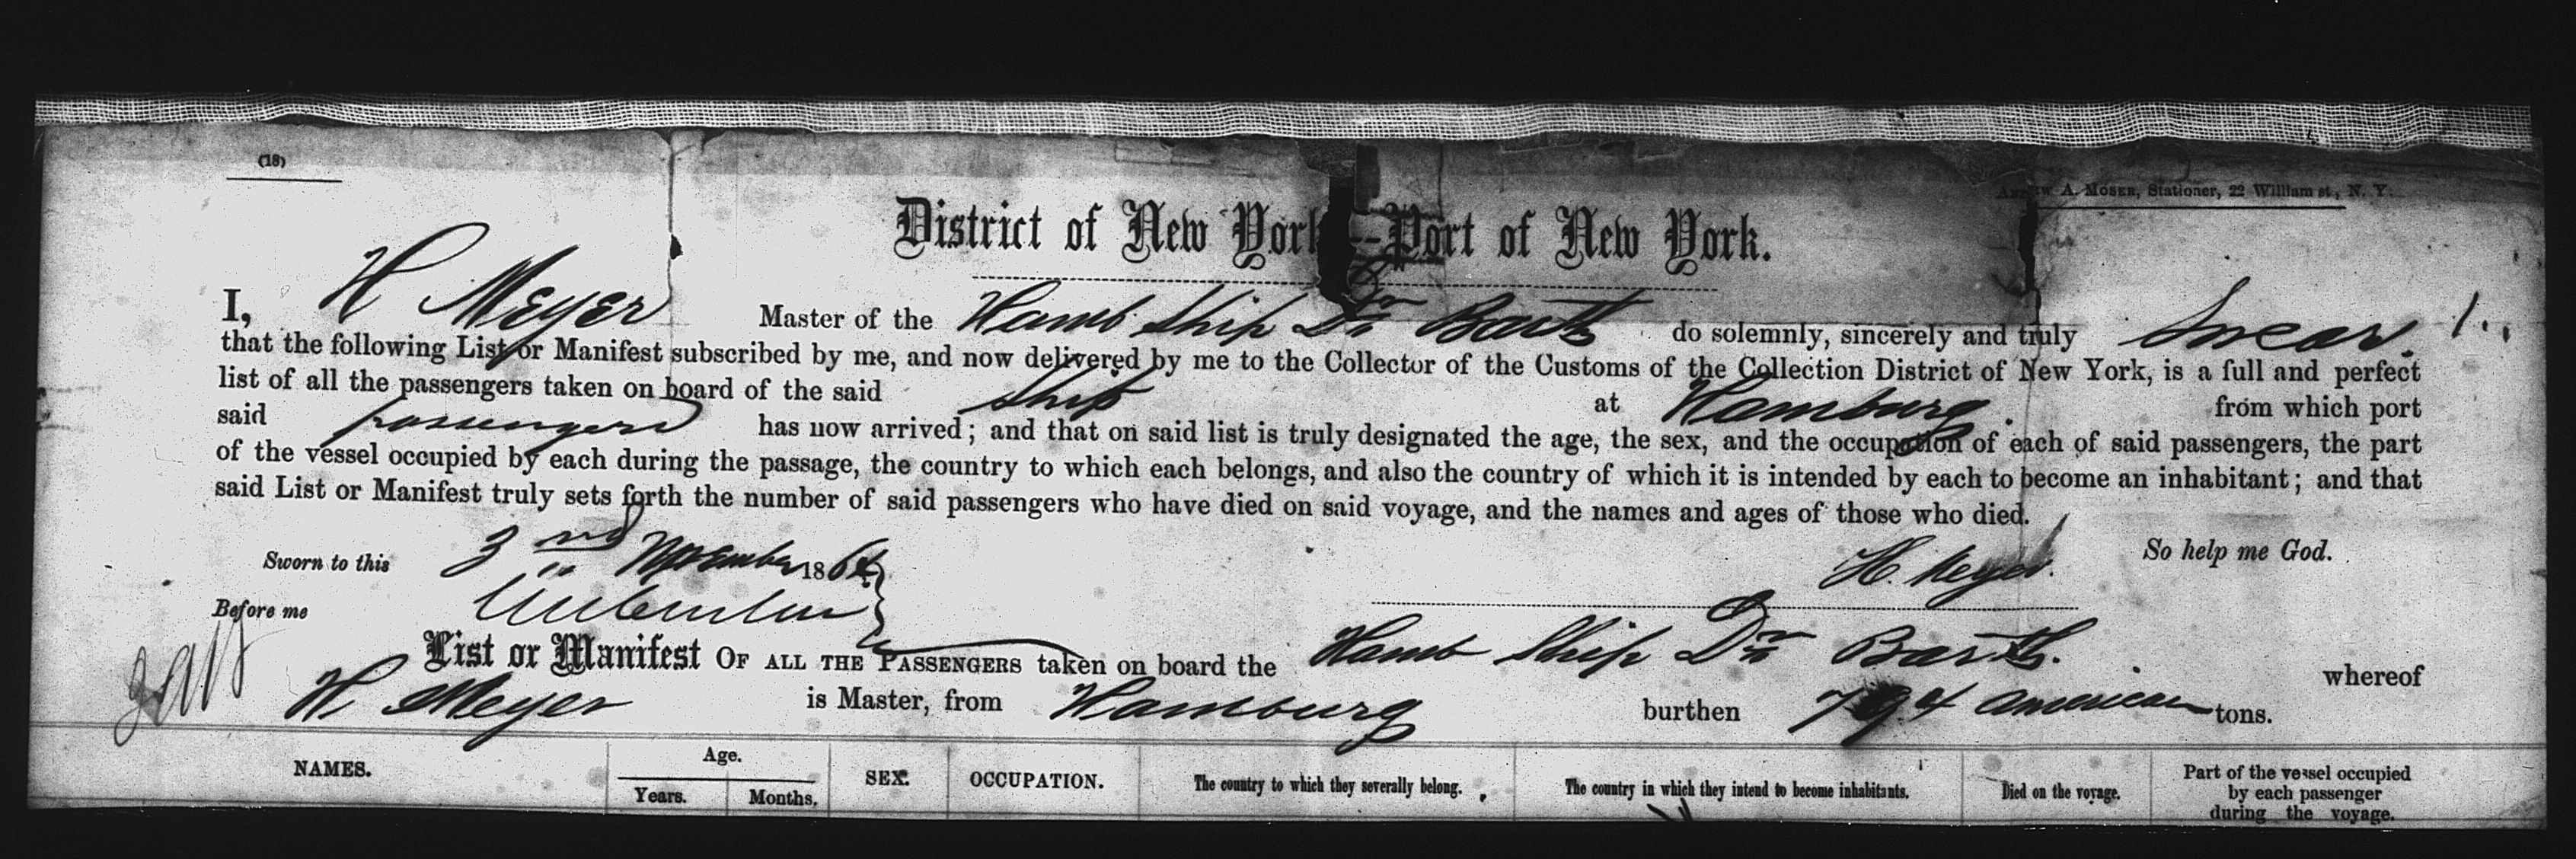 (18)
A. Moser, Stationer, 22 William st., N. Y.
District of New York--Port of New York.
I, H Meyer Master of the Hamb. Ship Dr Barth do solemnly, sincerely and truly Swear
that the following List or Manifest subscribed by me, and now delivered by me to the Collector of the Customs of the Collection District of New York, is a full and perfect
list of all the passengers taken on board of the said Ship at Hamburg from which port
said passengers has now arrived; and that on said list is truly designated the age, the sex, and the occupation of each of said passengers, the part
of the vessel occupied by each during the passage, the country to which each belongs, and also the country of which it is intended by each to become an inhabitant; and that
said List or Manifest truly sets forth the number of said passengers who have died on said voyage, and the names and ages of those who died.
Sworn to this 3nd November 1864 So help me God.
Before me H. Meyer.
List or Manifest OF ALL THE PASSENGERS taken on board the Hamb Ship Dr Barth. whereof
H Meyer is Master, from Hamburg burthen 794 American tons.
NAMES. Age. SEX. OCCUPATION. The country to which they severally belong. The country in which they intend to become inhabitants. Died on the voyage. Part of the vessel occupied
by each passenger
during the voyage.
Years. Months.